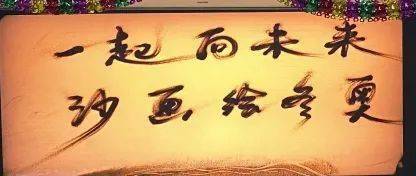 一起向未来
沙画绘冬奥